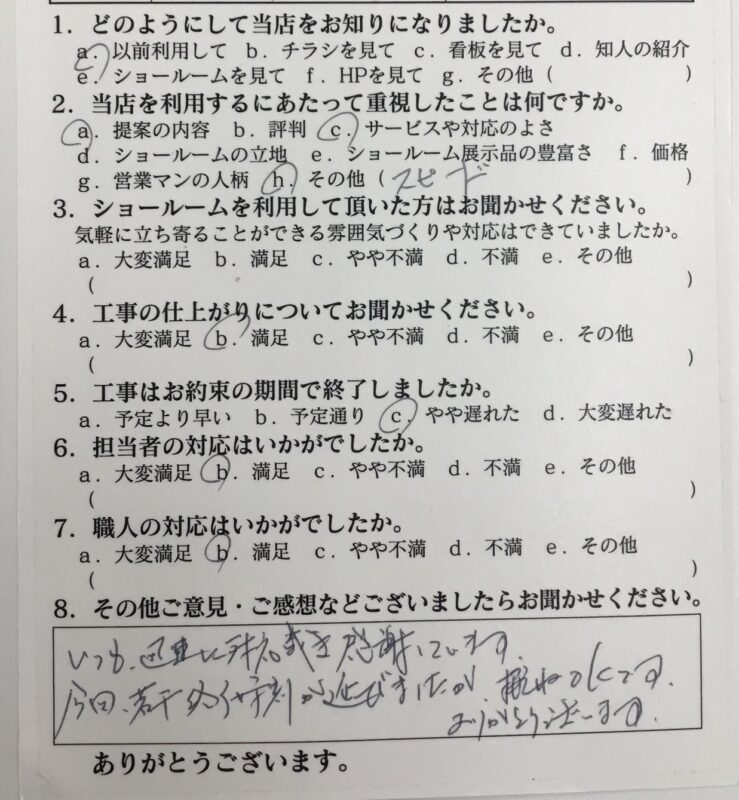 1．どのようにして当店をお知りになりましたか。
a．以前利用して b．チラシを見て c．看板を見て d．知人の紹介
e．ショールームを見て f．HPを見て g．その他 (　　　)
2．当店を利用するにあたって重視したことは何ですか。
a．提案の内容 b．評判 c．サービスや対応のよさ
d．ショールームの立地 e．ショールーム展示品の豊富さ f．価格
g．営業マンの人柄 h．その他 ( スピード )
3．ショールームを利用して頂いた方はお聞かせください。
気軽に立ち寄ることができる雰囲気づくりや対応はできていましたか。
a．大変満足 b．満足 c．やや不満 d．不満 e．その他
(　　　)
4．工事の仕上がりについてお聞かせください。
a．大変満足 b．満足 c．やや不満 d．不満 e．その他
(　　　)
5．工事はお約束の期間で終了しましたか。
a．予定より早い b．予定通り c．やや遅れた d．大変遅れた
6．担当者の対応はいかがでしたか。
a．大変満足 b．満足 c．やや不満 d．不満 e．その他
(　　　)
7．職人の対応はいかがでしたか。
a．大変満足 b．満足 c．やや不満 d．不満 e．その他
(　　　)
8．その他ご意見・ご感想などございましたらお聞かせください。
いつも、迅速に対応戴き感謝しています。
今回、若干 時刻が延びましたが 概ねOKです。
ありがとう
ありがとうございます。